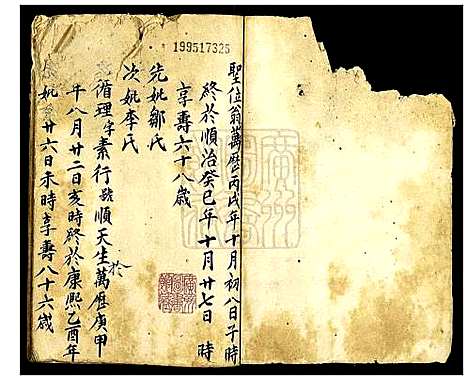 199517325
聖位翁萬歷丙戌年十月初八日子時
終於順治癸巳年十月廿七日 時
享壽六十八歲
先妣鄒氏
次妣李氏
循理字素行號順天生於萬歷庚甲
年八月廿二日亥時終於康熙乙酉年
妣 廿六日未時享壽八十六歲